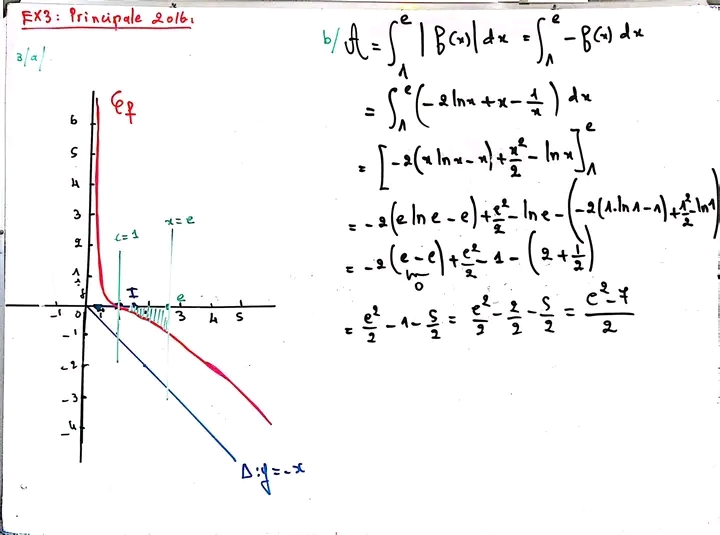 EX3: Principale 2016:
3/a/
𝒞f
6
5
4
3
2
1
x=1
x=e
I
e
-1 0 1 2 3 4 5
-1
-2
-3
-4
Δ: y = -x
b/ 𝒜 = ∫₁^e |f(x)| dx = ∫₁^e -f(x) dx
= ∫₁^e (-2lnx + x - 1/x) dx
= [-2(x lnx - x) + x²/2 - lnx]₁^e
= -2(e ln e - e) + e²/2 - ln e - (-2(1·ln1 - 1) + 1²/2 - ln1)
= -2(e - e) + e²/2 - 1 - (2 + 1/2)
0
= e²/2 - 1 - 5/2 = e²/2 - 2/2 - 5/2 = (e² - 7)/2